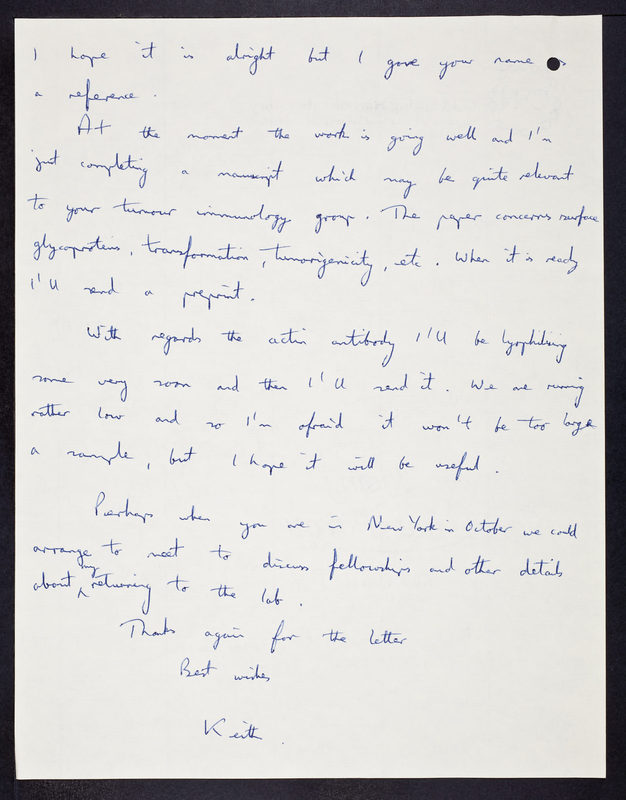 I hope it is alright but I gave your name as
a reference.
At the moment the work is going well and I'm
just completing a manuscript which may be quite relevant
to your tumour immunology group. The paper concerns surface
glycoproteins, transformation, tumorigenicity, etc. When it is ready
I'll send a preprint.
With regards the actin antibody I'll be lyophilising
some very soon and then I'll send it. We are running
rather low and so I'm afraid it won't be too large
a sample, but I hope it will be useful.
Perhaps when you are in New York in October we could
arrange to meet to discuss fellowships and other details
about my returning to the lab.
Thanks again for the letter
Best wishes
Keith